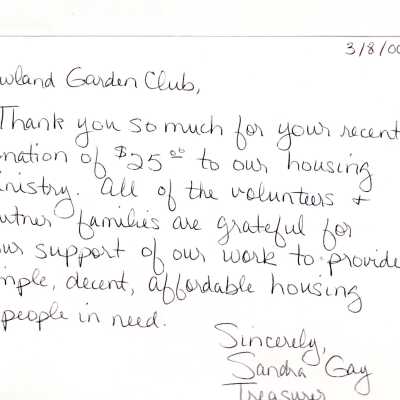 3/8/00
wland Garden Club,
Thank you so much for your recent
nation of $25.00 to our housing
nistry. All of the volunteers +
rtner families are grateful for
ur support of our work to provide
mple, decent, affordable housing
people in need.
Sincerely,
Sandra Gay
Treasurer